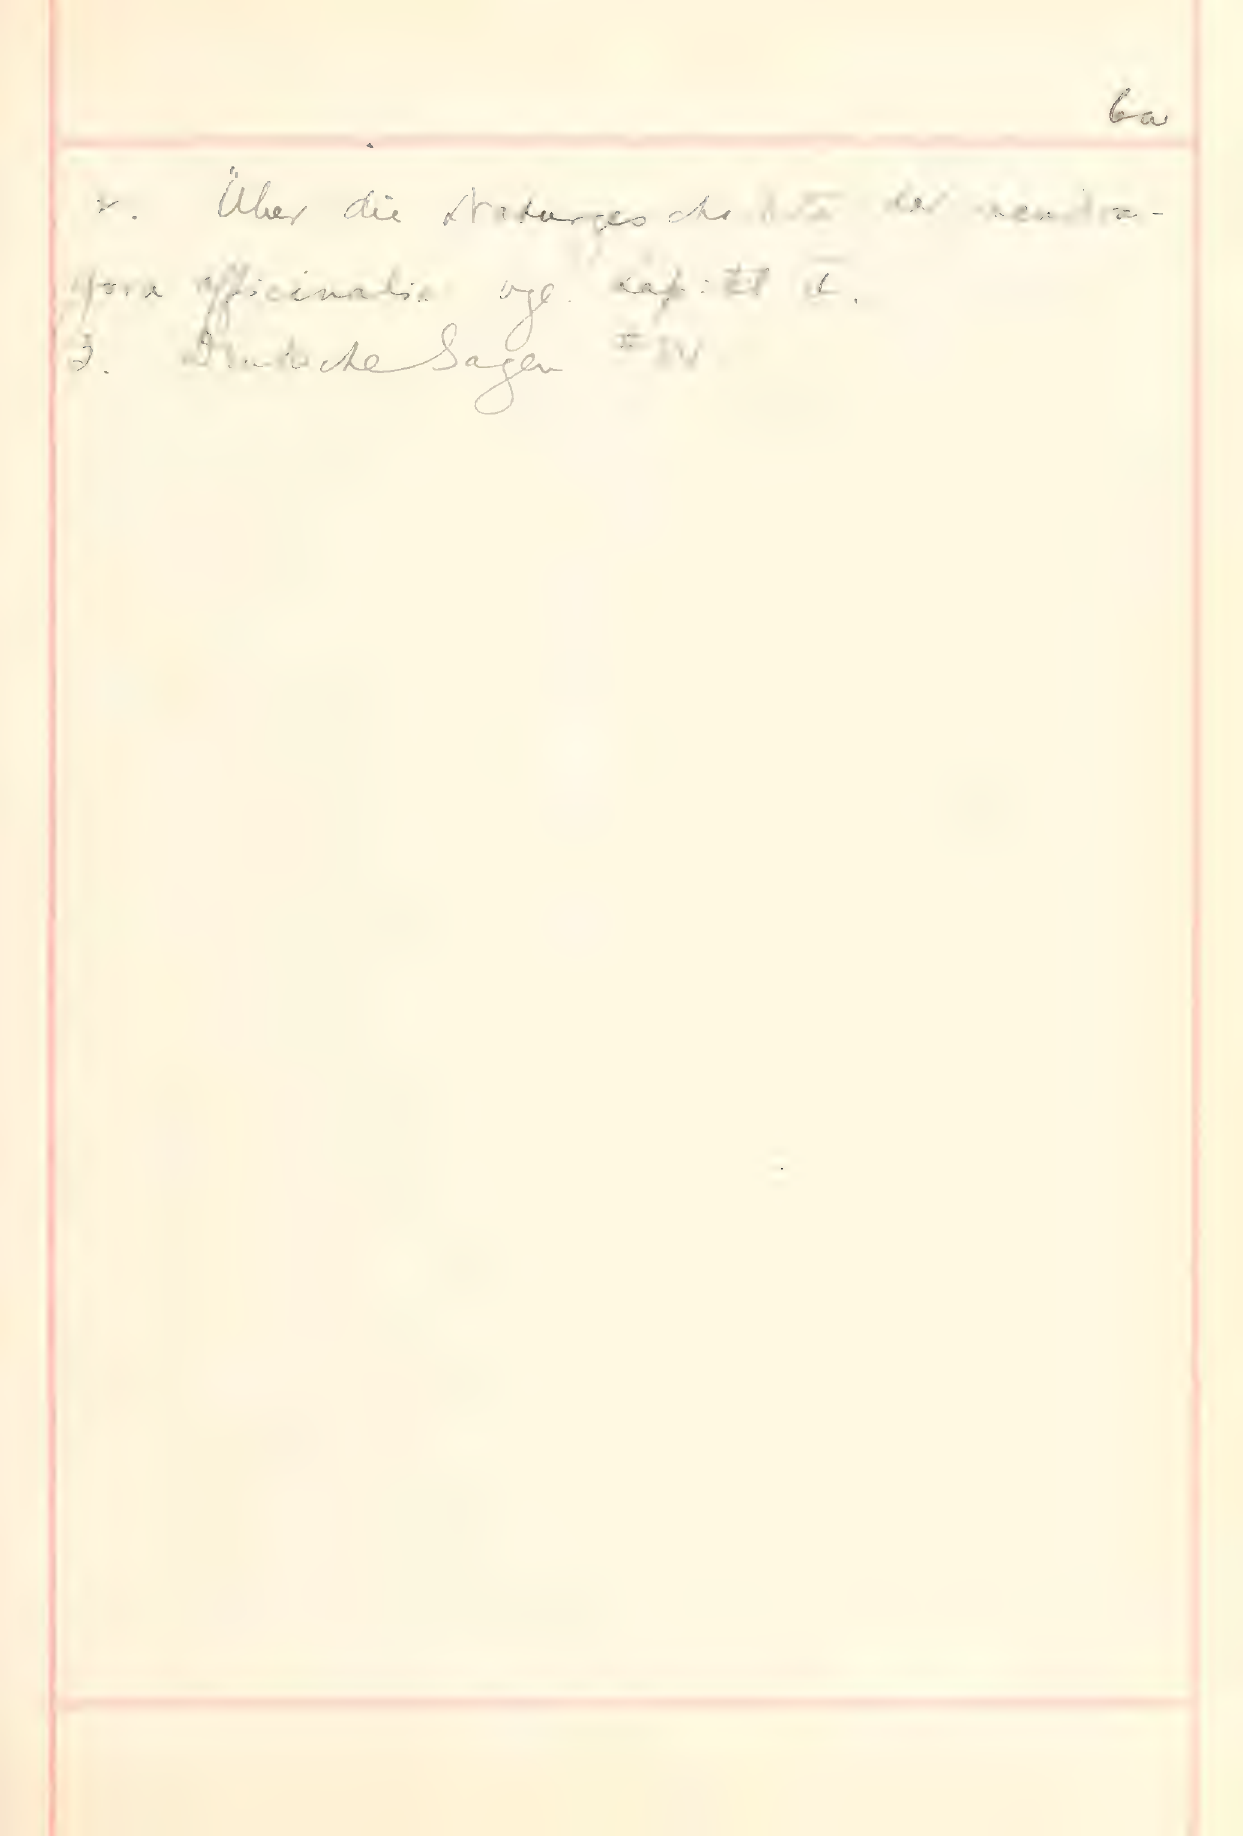 6a
2. Über die Naturgeschichte der mandra-
gora officinalis vgl. Kapitel II.
3. Deutsche Sagen